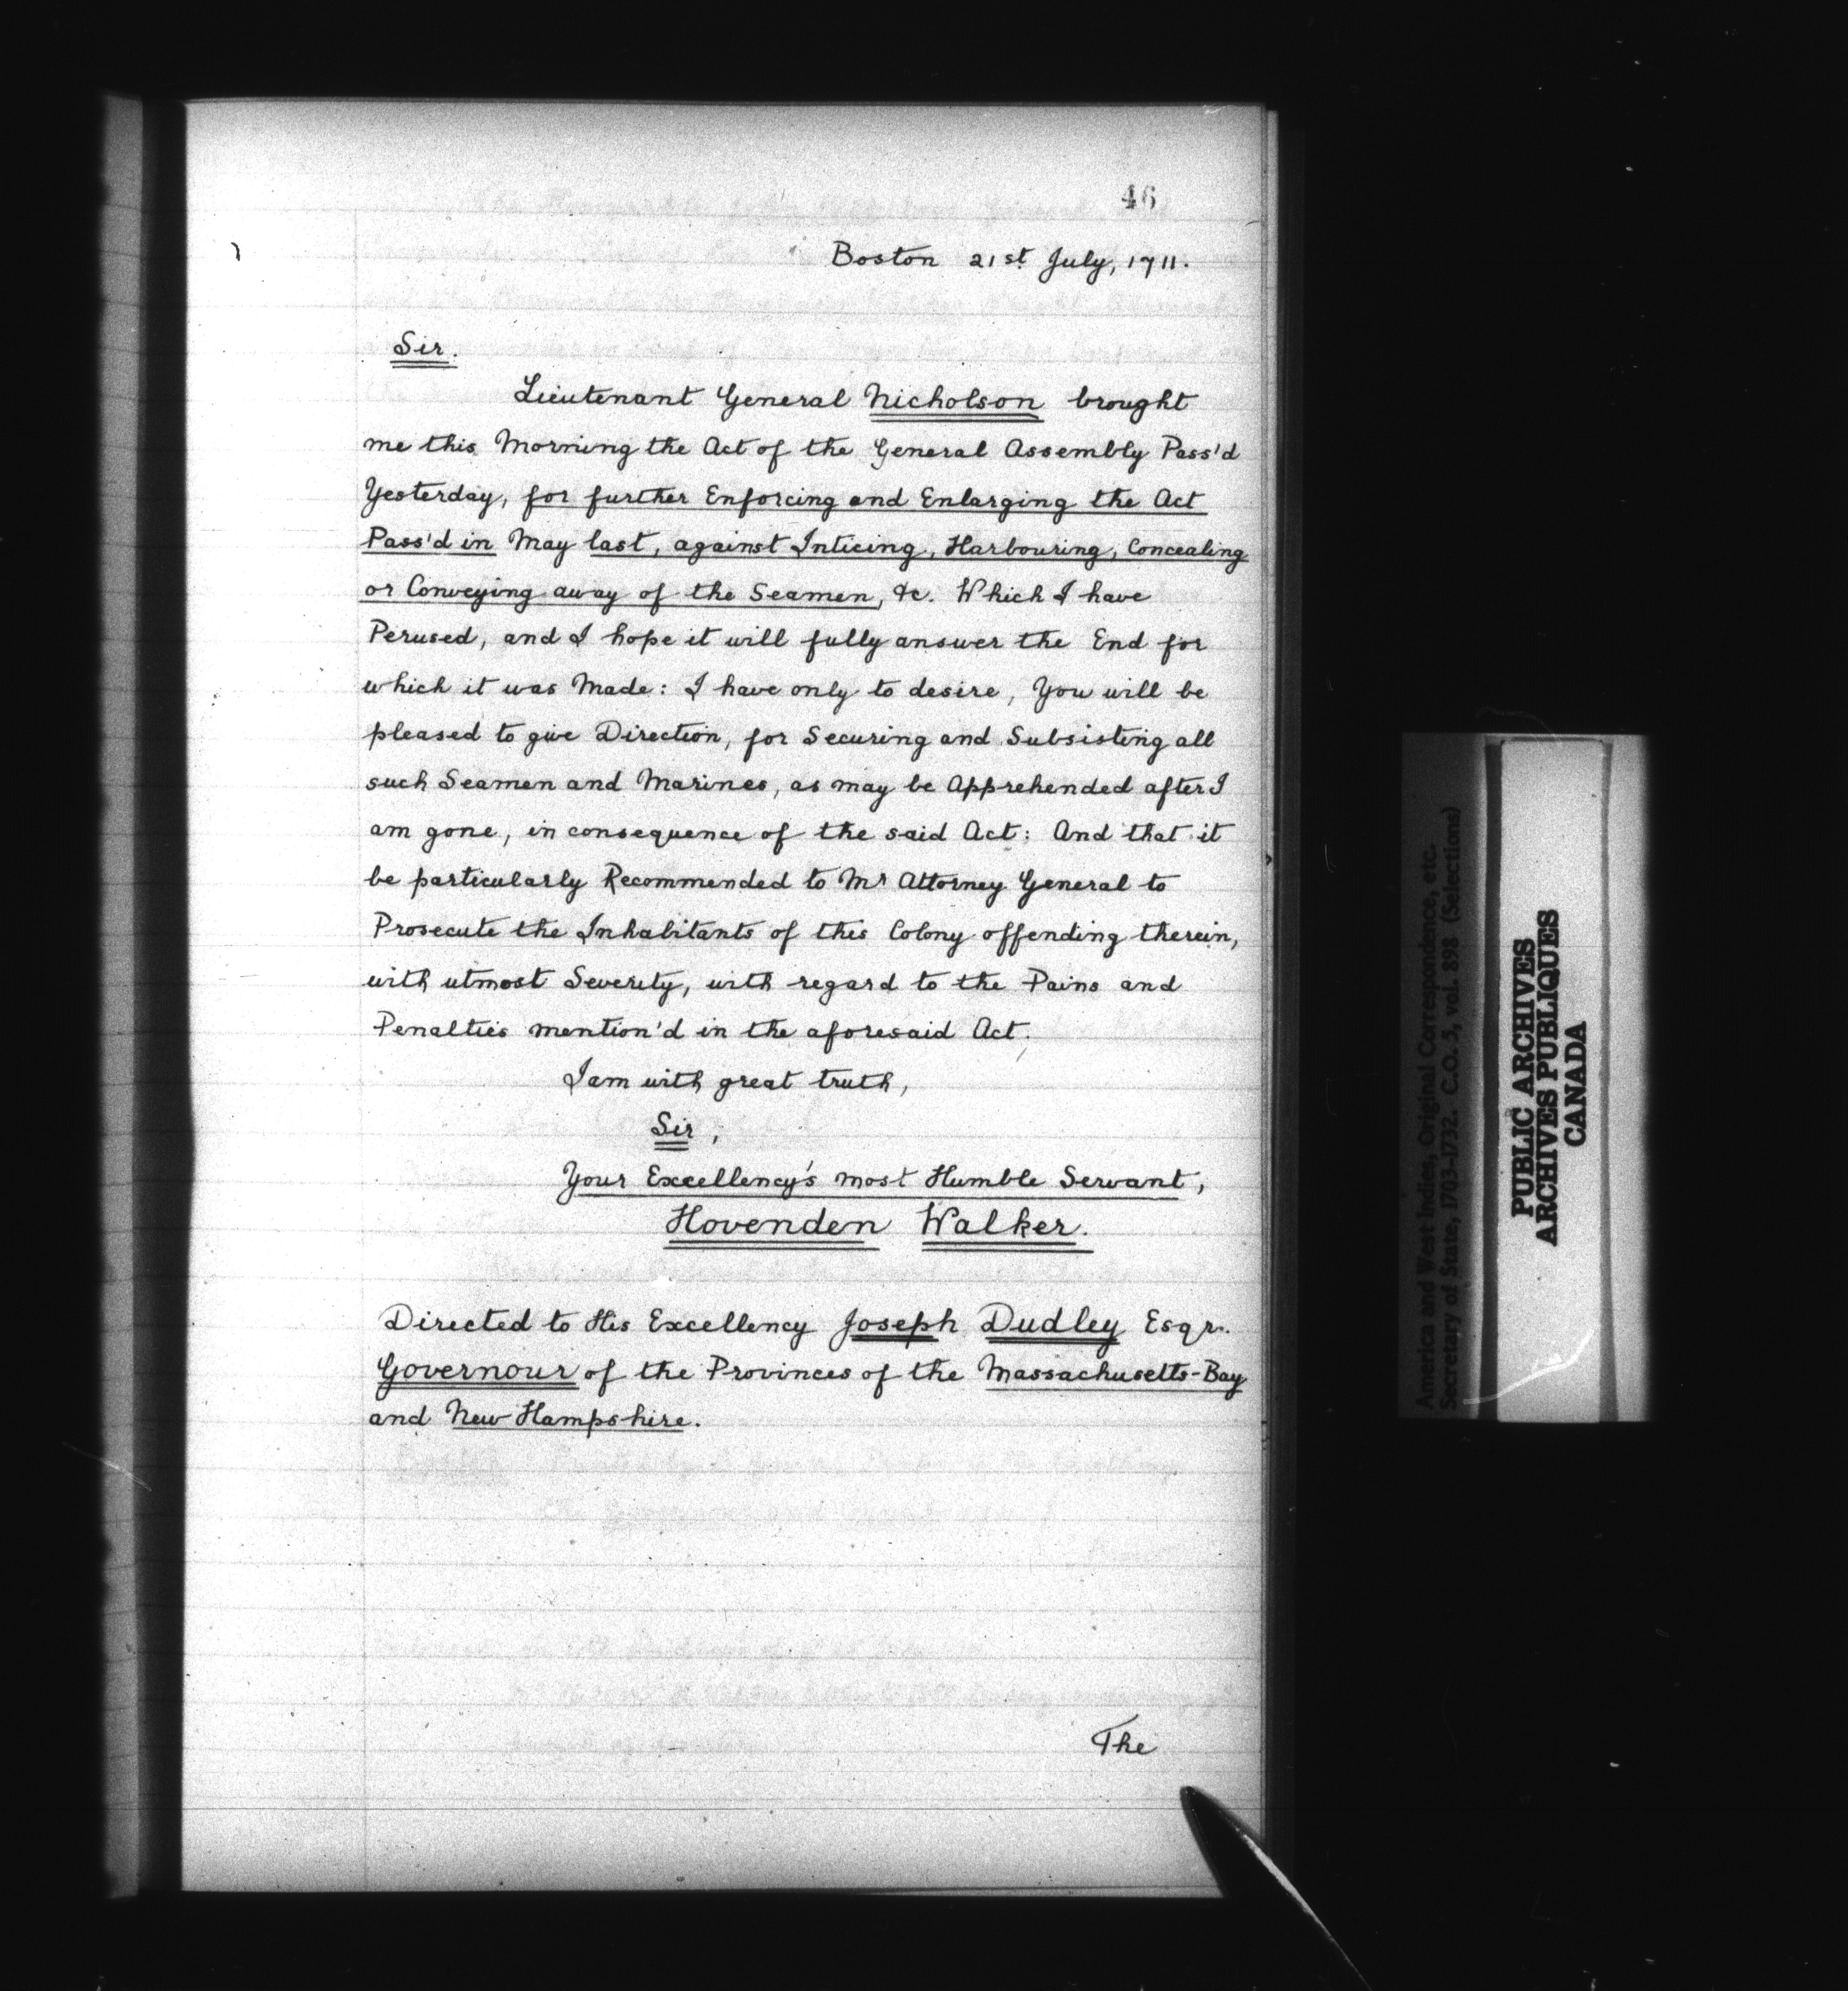 46
Boston 21st July, 1711.
Sir.
Lieutenant General Nicholson brought
me this Morning the Act of the General Assembly Pass'd
Yesterday, for further Enforcing and Enlarging the Act
Pass'd in May last, against Inticing, Harbouring, Concealing
or Conveying away of the Seamen, &c. Which I have
Perused, and I hope it will fully answer the End for
which it was Made: I have only to desire, You will be
pleased to give Direction, for Securing and Subsisting all
such Seamen and Marines, as may be Apprehended after I
am gone, in consequence of the said Act: And that it
be particularly Recommended to Mr Attorney General to
Prosecute the Inhabitants of this Colony offending therein,
with utmost Severity, with regard to the Pains and
Penalties mention'd in the aforesaid Act.
I am with great truth,
Sir,
Your Excellency's most Humble Servant,
Hovenden Walker.
Directed to His Excellency Joseph Dudley Esqr.
Governour of the Provinces of the Massachusetts-Bay
and New Hampshire.
The
America and West Indies, Original Correspondence, etc.
Secretary of State, 1703-1732. C.O. 5, vol. 898 (Selections)
PUBLIC ARCHIVES
ARCHIVES PUBLIQUES
CANADA